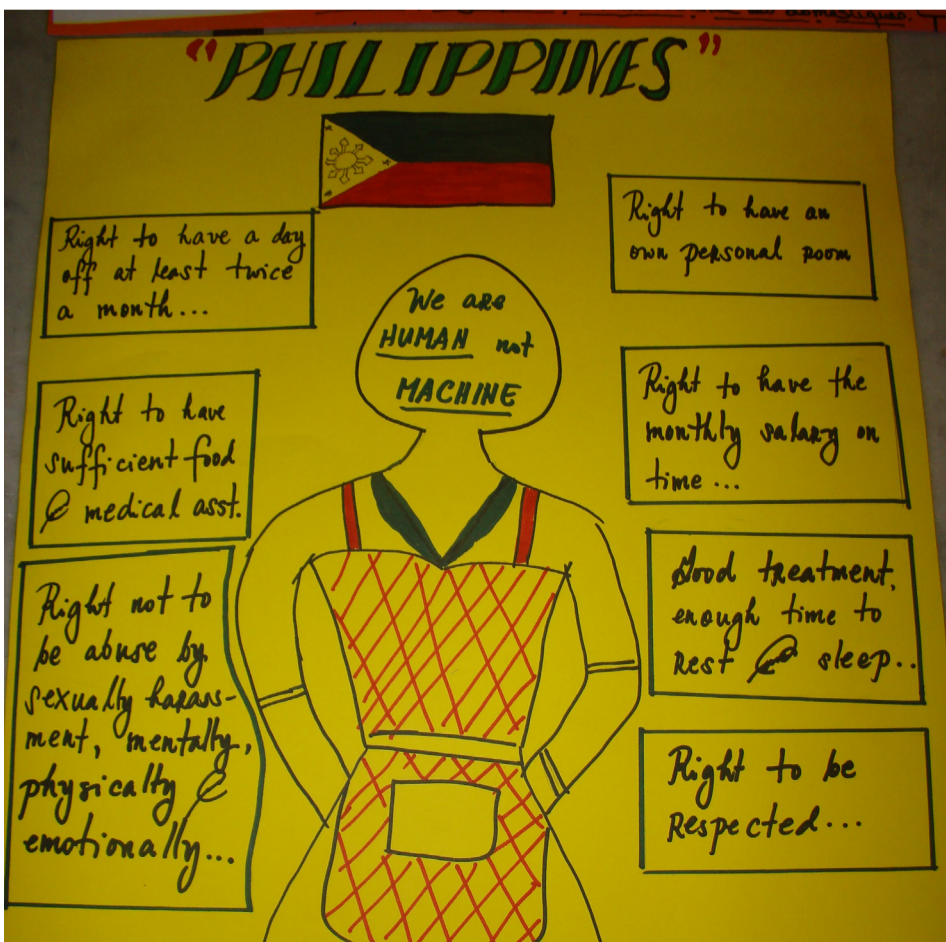 domestiques.
"PHILIPPINES"
Right to have a day
off at least twice
a month...
Right to have
sufficient food
& medical asst.
Right not to
be abuse by
sexually harass-
ment, mentally,
physically &
emotionally...
We are
HUMAN not
MACHINE
Right to have an
own personal room
Right to have the
monthly salary on
time...
Good treatment,
enough time to
rest & sleep..
Right to be
Respected...